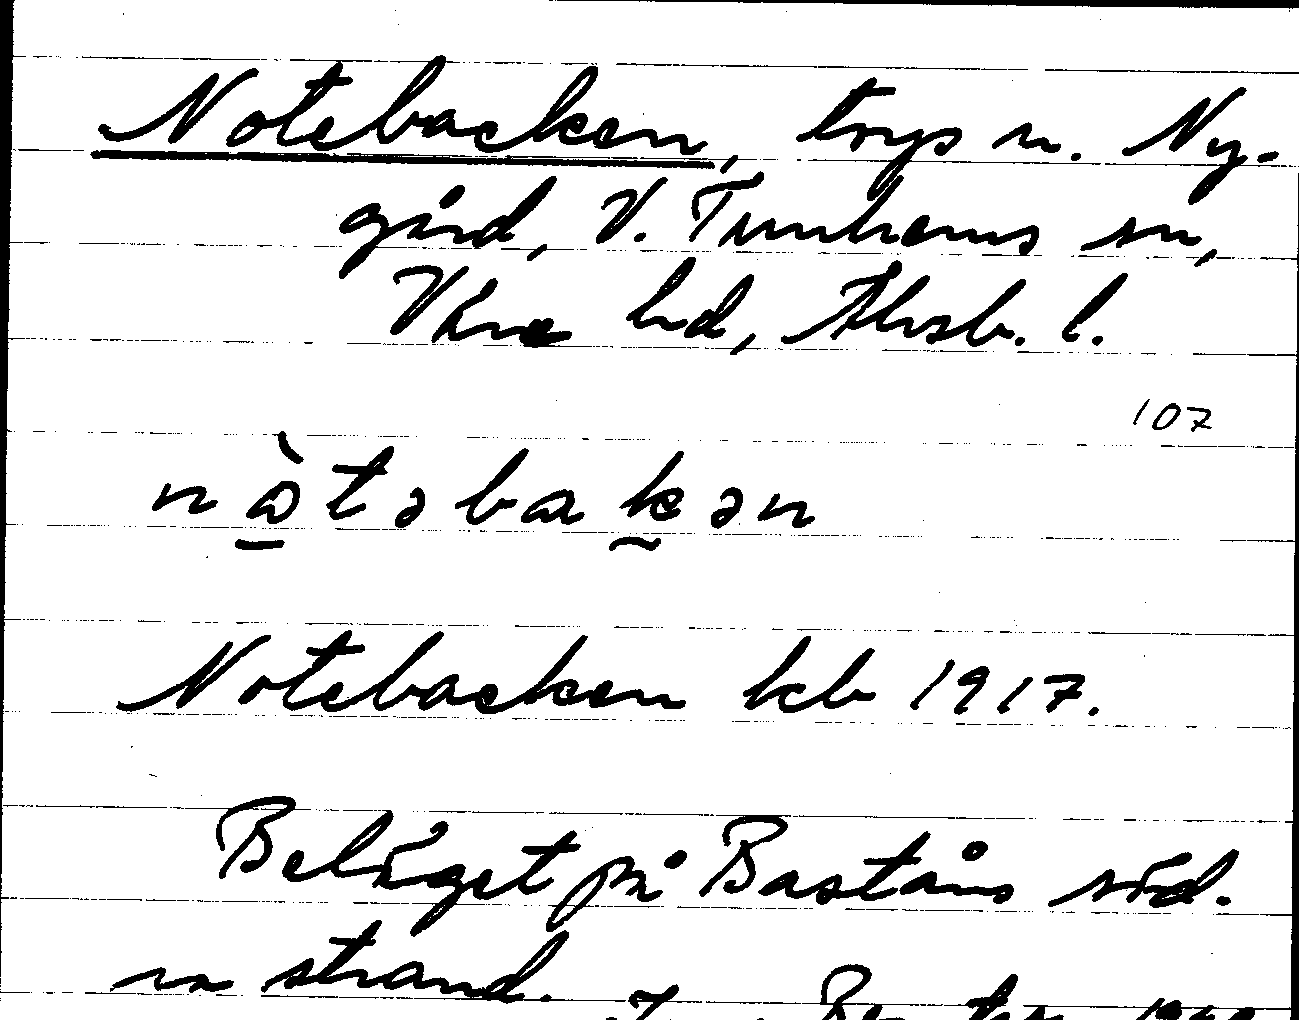 Notebacken, torps n. Ny-
gård, V. Tunhems sn,
Väne hd, Älvsb. l.
107
nòtəbakən
Notebacken kb 1917.
Beläget på Baståns söd.
ra strand.